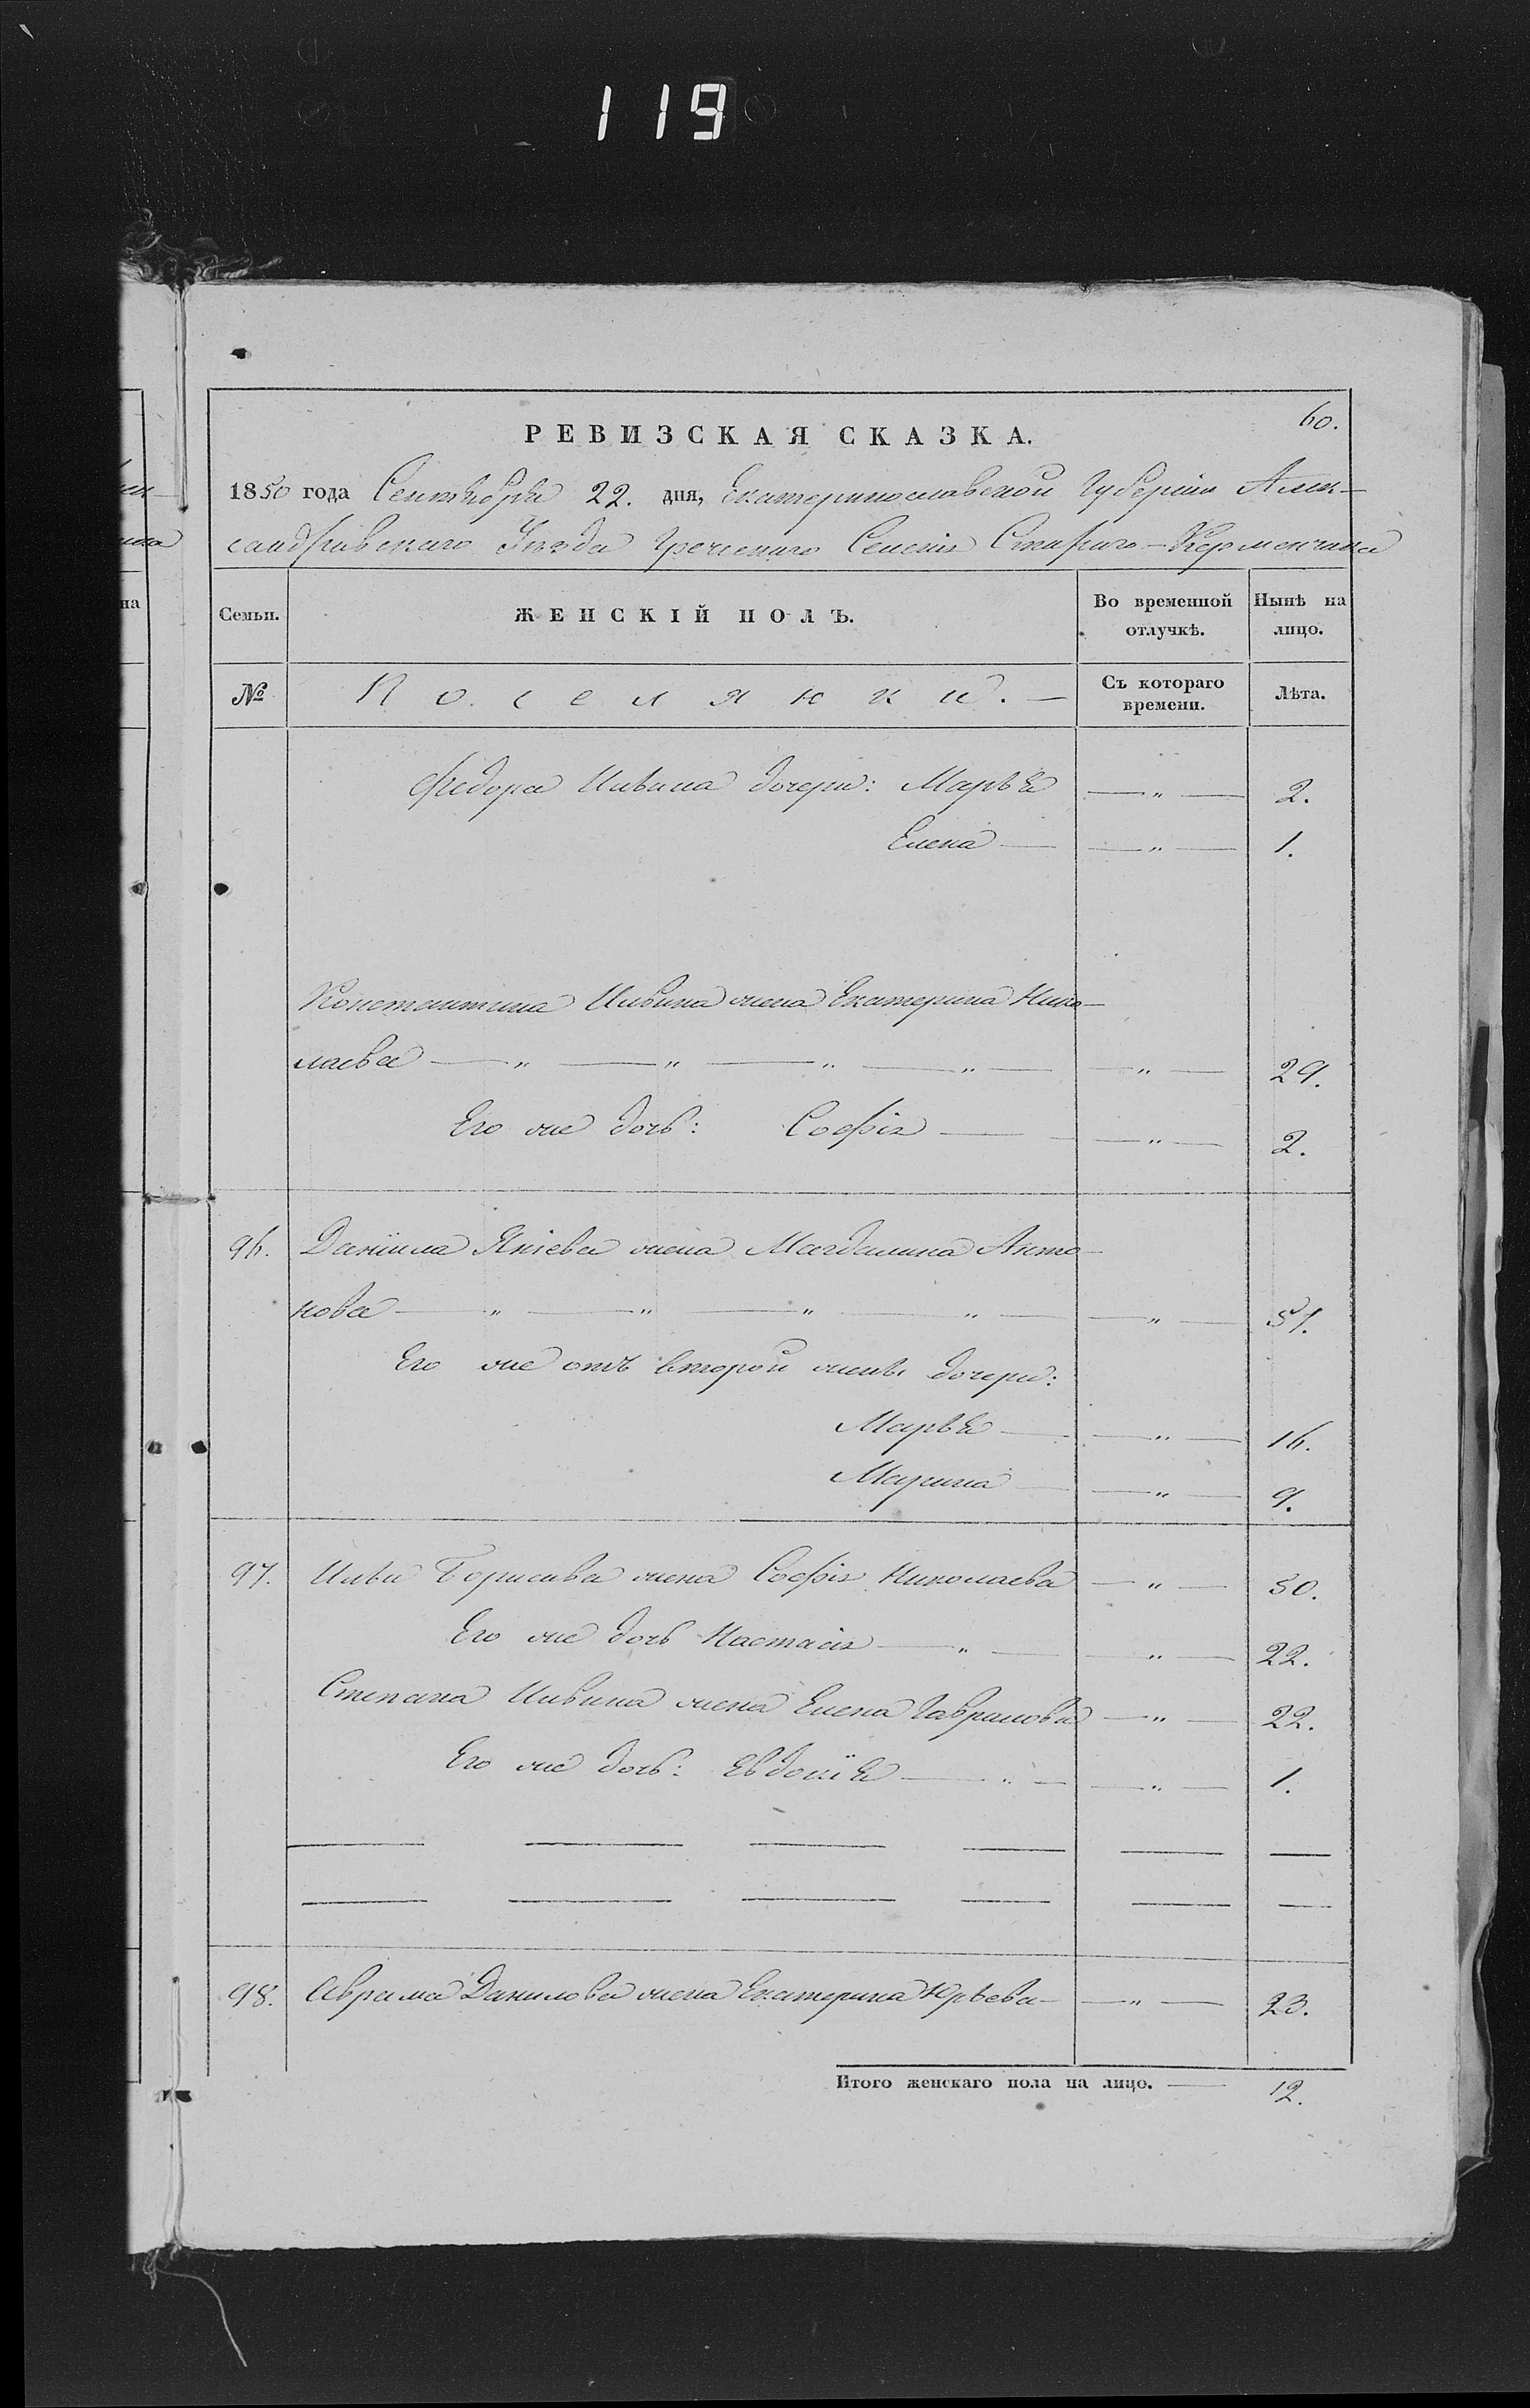 119
60.
РЕВИЗСКАЯ СКАЗКА.
1850 года Сентября 22. дня, Екатеринославской Губерніи Алек-
сандровскаго Уѣзда Греческаго Селенія Стараго-Керменчика
на
Семьи. ЖЕНСКІЙ ПОЛЪ. Во временной отлучкѣ. Нынѣ на лицо.
№ Поселянки. — Съ котораго времени. Лѣта.
Федора Ильина дочери: Марья — " — 2.
Елена — — " — 1.
Константина Ильина жена Екатерина Нико-
лаева — " — " — " — " — — " — 29.
Его же дочь: Софія — — " — 2.
96. Даніила Якіева жена Магдалина Анто-
нова — " — " — " — " — — " — 51.
Его же отъ второй жены дочери:
Марья — — " — 16.
Марина — — " — 9.
97. Ильи Борисова жена Софія Николаева — " — 50.
Его же дочь Настасія — " — — " — 22.
Степана Ильина жена Елена Гаврилова — " — 22.
Его же дочь: Евдокія — " — — " — 1.
— — — — — —
— — — — — —
98. Аврама Данилова жена Екатерина Юрьева — — " — 23.
Итого женскаго пола на лицо. — 12.